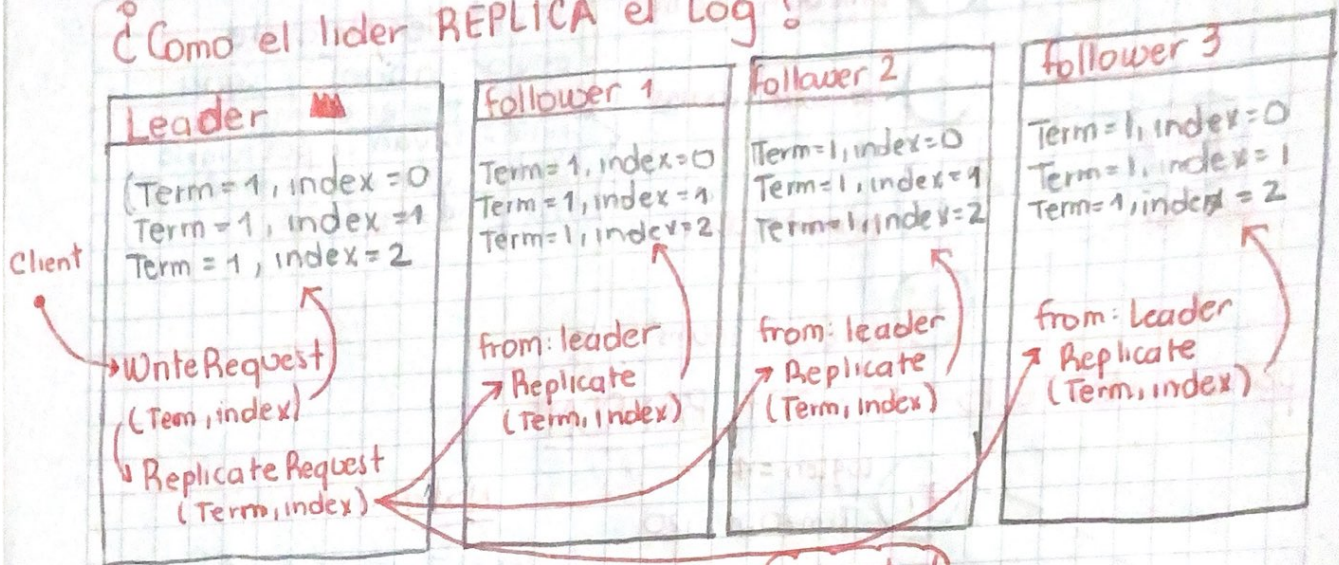 ¿Como el lider REPLICA el Log?
Leader
(Term=1, index=0
Term=1, index=1
Term=1, index=2
Client
WriteRequest
(Term, index)
ReplicateRequest
(Term, index)
follower 1
Term=1, index=0
Term=1, index=1
Term=1, index=2
from: leader
Replicate
(Term, Index)
Follower 2
Term=1, index=0
Term=1, index=1
Term=1, index=2
from: leader
Replicate
(Term, Index)
follower 3
Term=1, index=0
Term=1, index=1
Term=1, index=2
from: Leader
Replicate
(Term, index)